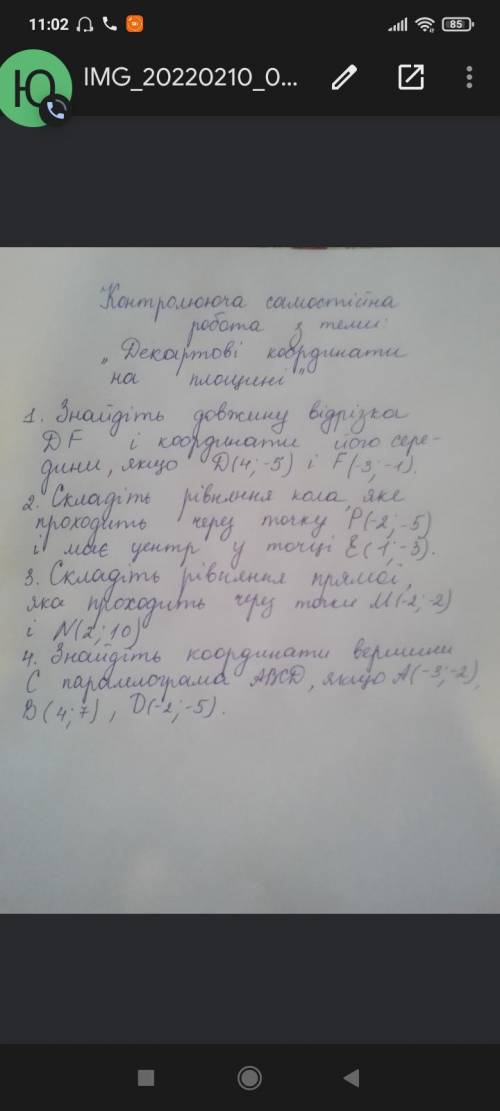 11:02
85
Ю
IMG_20220210_0...
Контролююча самостійна
робота з теми:
„Декартові координати
на площині"
1. Знайдіть довжину відрізка
DF і координати його сере-
дини, якщо D(4;-5) і F(-3;-1).
2. Складіть рівняння кола, яке
проходить через точку P(-2;-5)
і має центр у точці E(1;-3).
3. Складіть рівняння прямої,
яка проходить через точки M(-2;-2)
і N(2;10)
4. Знайдіть координати вершини
C паралелограма ABCD, якщо A(-3;-2),
B(4;7), D(-2;-5).